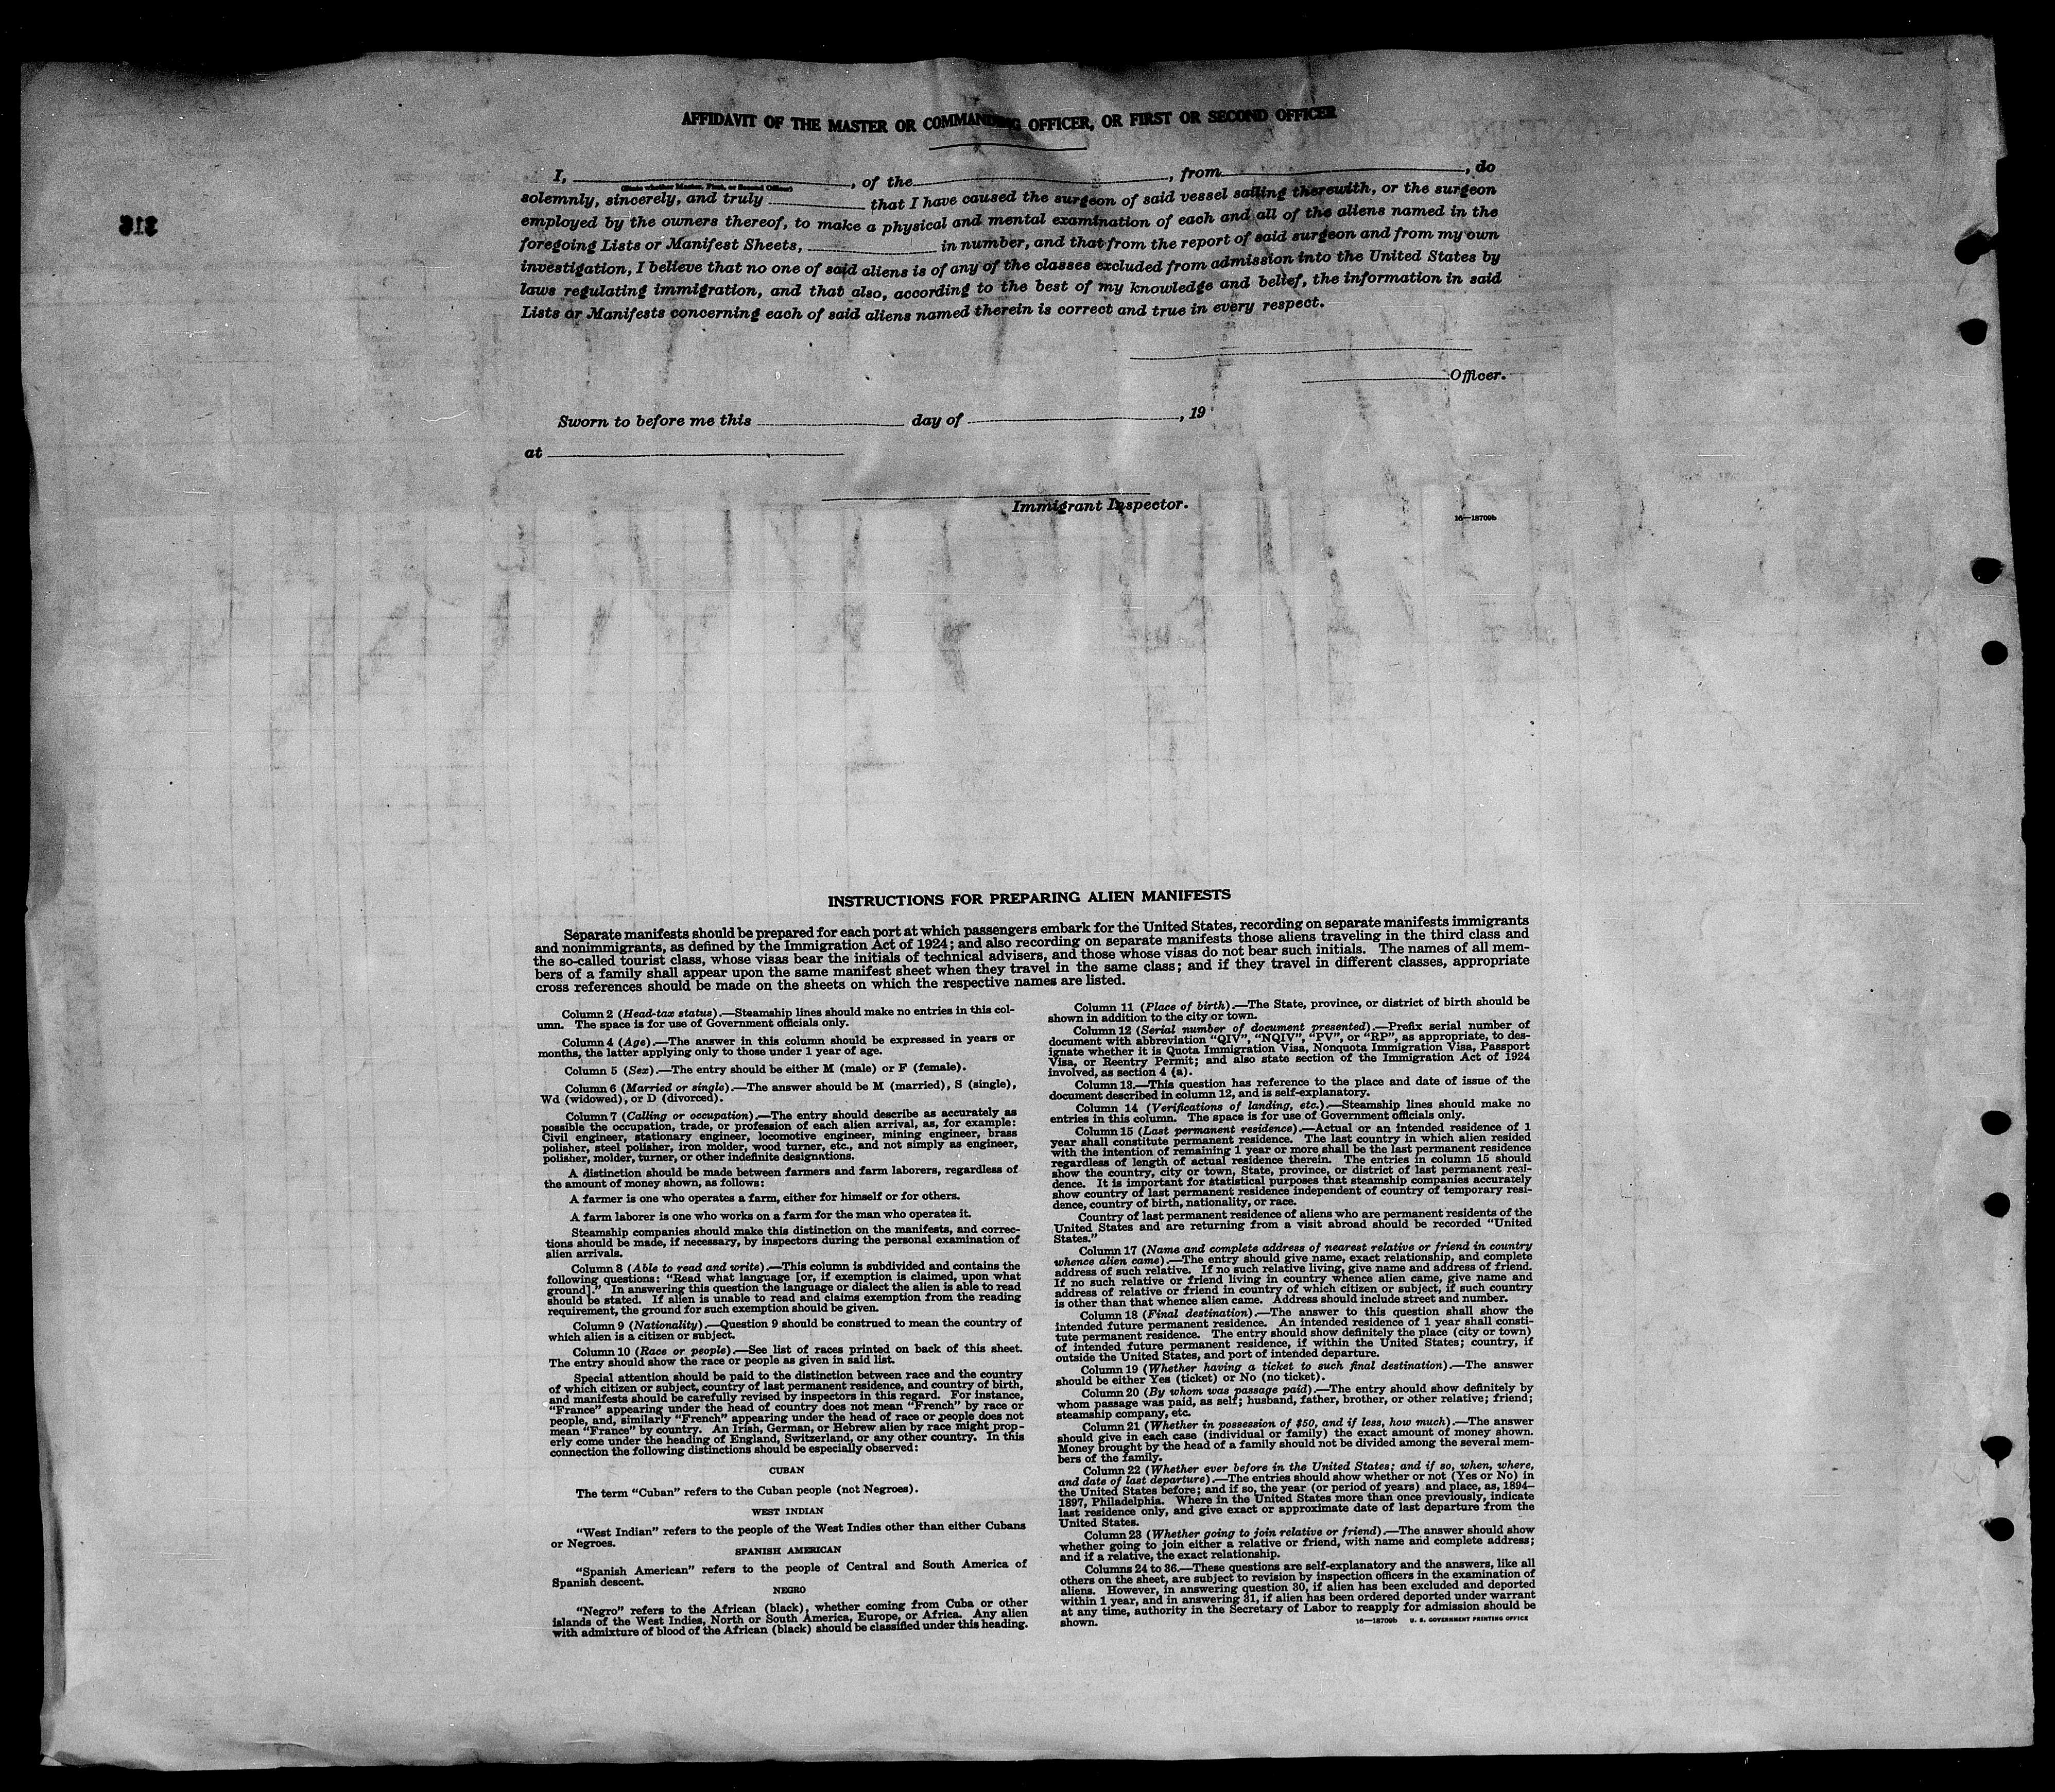 AFFIDAVIT OF THE MASTER OR COMMANDING OFFICER, OR FIRST OR SECOND OFFICER
I, , of the , from , do
(State whether Master, First, or Second Officer)
solemnly, sincerely, and truly that I have caused the surgeon of said vessel sailing therewith, or the surgeon
employed by the owners thereof, to make a physical and mental examination of each and all of the aliens named in the
foregoing Lists or Manifest Sheets, in number, and that from the report of said surgeon and from my own
investigation, I believe that no one of said aliens is of any of the classes excluded from admission into the United States by
laws regulating immigration, and that also, according to the best of my knowledge and belief, the information in said
Lists or Manifests concerning each of said aliens named therein is correct and true in every respect.
Officer.
Sworn to before me this day of , 19
at
Immigrant Inspector.
16—18709b
INSTRUCTIONS FOR PREPARING ALIEN MANIFESTS
Separate manifests should be prepared for each port at which passengers embark for the United States, recording on separate manifests immigrants
and nonimmigrants, as defined by the Immigration Act of 1924; and also recording on separate manifests those aliens traveling in the third class and
the so-called tourist class, whose visas bear the initials of technical advisers, and those whose visas do not bear such initials. The names of all mem-
bers of a family shall appear upon the same manifest sheet when they travel in the same class; and if they travel in different classes, appropriate
cross references should be made on the sheets on which the respective names are listed.
Column 2 (Head-tax status).—Steamship lines should make no entries in this col-
umn. The space is for use of Government officials only.
Column 4 (Age).—The answer in this column should be expressed in years or
months, the latter applying only to those under 1 year of age.
Column 5 (Sex).—The entry should be either M (male) or F (female).
Column 6 (Married or single).—The answer should be M (married), S (single),
Wd (widowed), or D (divorced).
Column 7 (Calling or occupation).—The entry should describe as accurately as
possible the occupation, trade, or profession of each alien arrival, as, for example:
Civil engineer, stationary engineer, locomotive engineer, mining engineer, brass
polisher, steel polisher, iron molder, wood turner, etc., and not simply as engineer,
polisher, molder, turner, or other indefinite designations.
A distinction should be made between farmers and farm laborers, regardless of
the amount of money shown, as follows:
A farmer is one who operates a farm, either for himself or for others.
A farm laborer is one who works on a farm for the man who operates it.
Steamship companies should make this distinction on the manifests, and correc-
tions should be made, if necessary, by inspectors during the personal examination of
alien arrivals.
Column 8 (Able to read and write).—This column is subdivided and contains the
following questions: "Read what language [or, if exemption is claimed, upon what
ground]." In answering this question the language or dialect the alien is able to read
should be stated. If alien is unable to read and claims exemption from the reading
requirement, the ground for such exemption should be given.
Column 9 (Nationality).—Question 9 should be construed to mean the country of
which alien is a citizen or subject.
Column 10 (Race or people).—See list of races printed on back of this sheet.
The entry should show the race or people as given in said list.
Special attention should be paid to the distinction between race and the country
of which citizen or subject, country of last permanent residence, and country of birth,
and manifests should be carefully revised by inspectors in this regard. For instance,
"France" appearing under the head of country does not mean "French" by race or
people, and, similarly "French" appearing under the head of race or people does not
mean "France" by country. An Irish, German, or Hebrew alien by race might prop-
erly come under the heading of England, Switzerland, or any other country. In this
connection the following distinctions should be especially observed:
CUBAN
The term "Cuban" refers to the Cuban people (not Negroes).
WEST INDIAN
"West Indian" refers to the people of the West Indies other than either Cubans
or Negroes.
SPANISH AMERICAN
"Spanish American" refers to the people of Central and South America of
Spanish descent.
NEGRO
"Negro" refers to the African (black), whether coming from Cuba or other
islands of the West Indies, North or South America, Europe, or Africa. Any alien
with admixture of blood of the African (black) should be classified under this heading.
Column 11 (Place of birth).—The State, province, or district of birth should be
shown in addition to the city or town.
Column 12 (Serial number of document presented).—Prefix serial number of
document with abbreviation "QIV", "NQIV", "PV", or "RP", as appropriate, to des-
ignate whether it is Quota Immigration Visa, Nonquota Immigration Visa, Passport
Visa, or Reentry Permit; and also state section of the Immigration Act of 1924
involved, as section 4 (a).
Column 13.—This question has reference to the place and date of issue of the
document described in column 12, and is self-explanatory.
Column 14 (Verifications of landing, etc.).—Steamship lines should make no
entries in this column. The space is for use of Government officials only.
Column 15 (Last permanent residence).—Actual or an intended residence of 1
year shall constitute permanent residence. The last country in which alien resided
with the intention of remaining 1 year or more shall be the last permanent residence
regardless of length of actual residence therein. The entries in column 15 should
show the country, city or town, State, province, or district of last permanent resi-
dence. It is important for statistical purposes that steamship companies accurately
show country of last permanent residence independent of country of temporary resi-
dence, country of birth, nationality, or race.
Country of last permanent residence of aliens who are permanent residents of the
United States and are returning from a visit abroad should be recorded "United
States."
Column 17 (Name and complete address of nearest relative or friend in country
whence alien came).—The entry should give name, exact relationship, and complete
address of such relative. If no such relative living, give name and address of friend.
If no such relative or friend living in country whence alien came, give name and
address of relative or friend in country of which citizen or subject, if such country
is other than that whence alien came. Address should include street and number.
Column 18 (Final destination).—The answer to this question shall show the
intended future permanent residence. An intended residence of 1 year shall consti-
tute permanent residence. The entry should show definitely the place (city or town)
of intended future permanent residence, if within the United States; country, if
outside the United States, and port of intended departure.
Column 19 (Whether having a ticket to such final destination).—The answer
should be either Yes (ticket) or No (no ticket).
Column 20 (By whom was passage paid).—The entry should show definitely by
whom passage was paid, as self; husband, father, brother, or other relative; friend;
steamship company, etc.
Column 21 (Whether in possession of $50, and if less, how much).—The answer
should give in each case (individual or family) the exact amount of money shown.
Money brought by the head of a family should not be divided among the several mem-
bers of the family.
Column 22 (Whether ever before in the United States; and if so, when, where,
and date of last departure).—The entries should show whether or not (Yes or No) in
the United States before; and if so, the year (or period of years) and place, as, 1894–
1897, Philadelphia. Where in the United States more than once previously, indicate
last residence only, and give exact or approximate date of last departure from the
United States.
Column 23 (Whether going to join relative or friend).—The answer should show
whether going to join either a relative or friend, with name and complete address;
and if a relative, the exact relationship.
Columns 24 to 36.—These questions are self-explanatory and the answers, like all
others on the sheet, are subject to revision by inspection officers in the examination of
aliens. However, in answering question 30, if alien has been excluded and deported
within 1 year, and in answering 31, if alien has been ordered deported under warrant
at any time, authority in the Secretary of Labor to reapply for admission should be
shown.
16—18709b U. S. GOVERNMENT PRINTING OFFICE